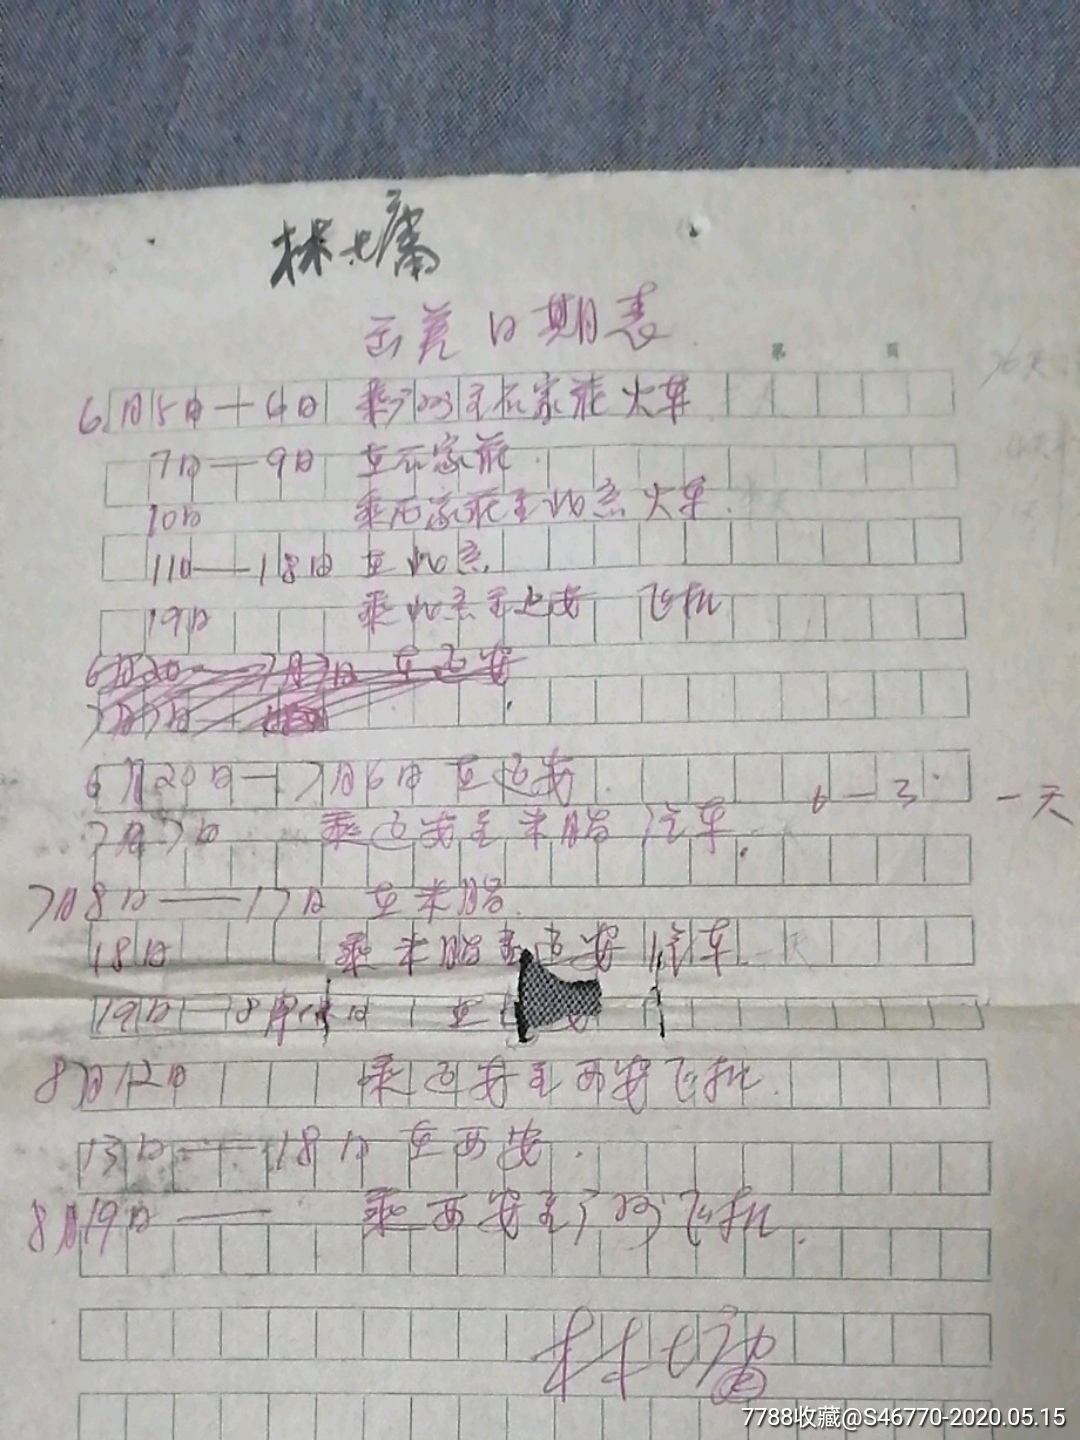 林墉
出差日期表
第 页
6月5日—6日 乘广州至石家庄火车
7日—9日 在石家庄.
10日 乘石家庄至北京火车.
11日—18日 在北京.
19日 乘北京至延安 飞机
6月20日—7月 日 在延安
7月7日—
6月20日—7月6日 在延安.
6—3. 一天
7月7日 乘延安至米脂汽车.
7月8日——17日 在米脂.
18日 乘米脂至延安汽车 一天
19日—8月 日 在 安
8月12日 乘延安至西安飞机.
13日——18日 在西安.
8月19日—— 乘西安至广州飞机.
林墉
7788收藏@S46770-2020.05.15